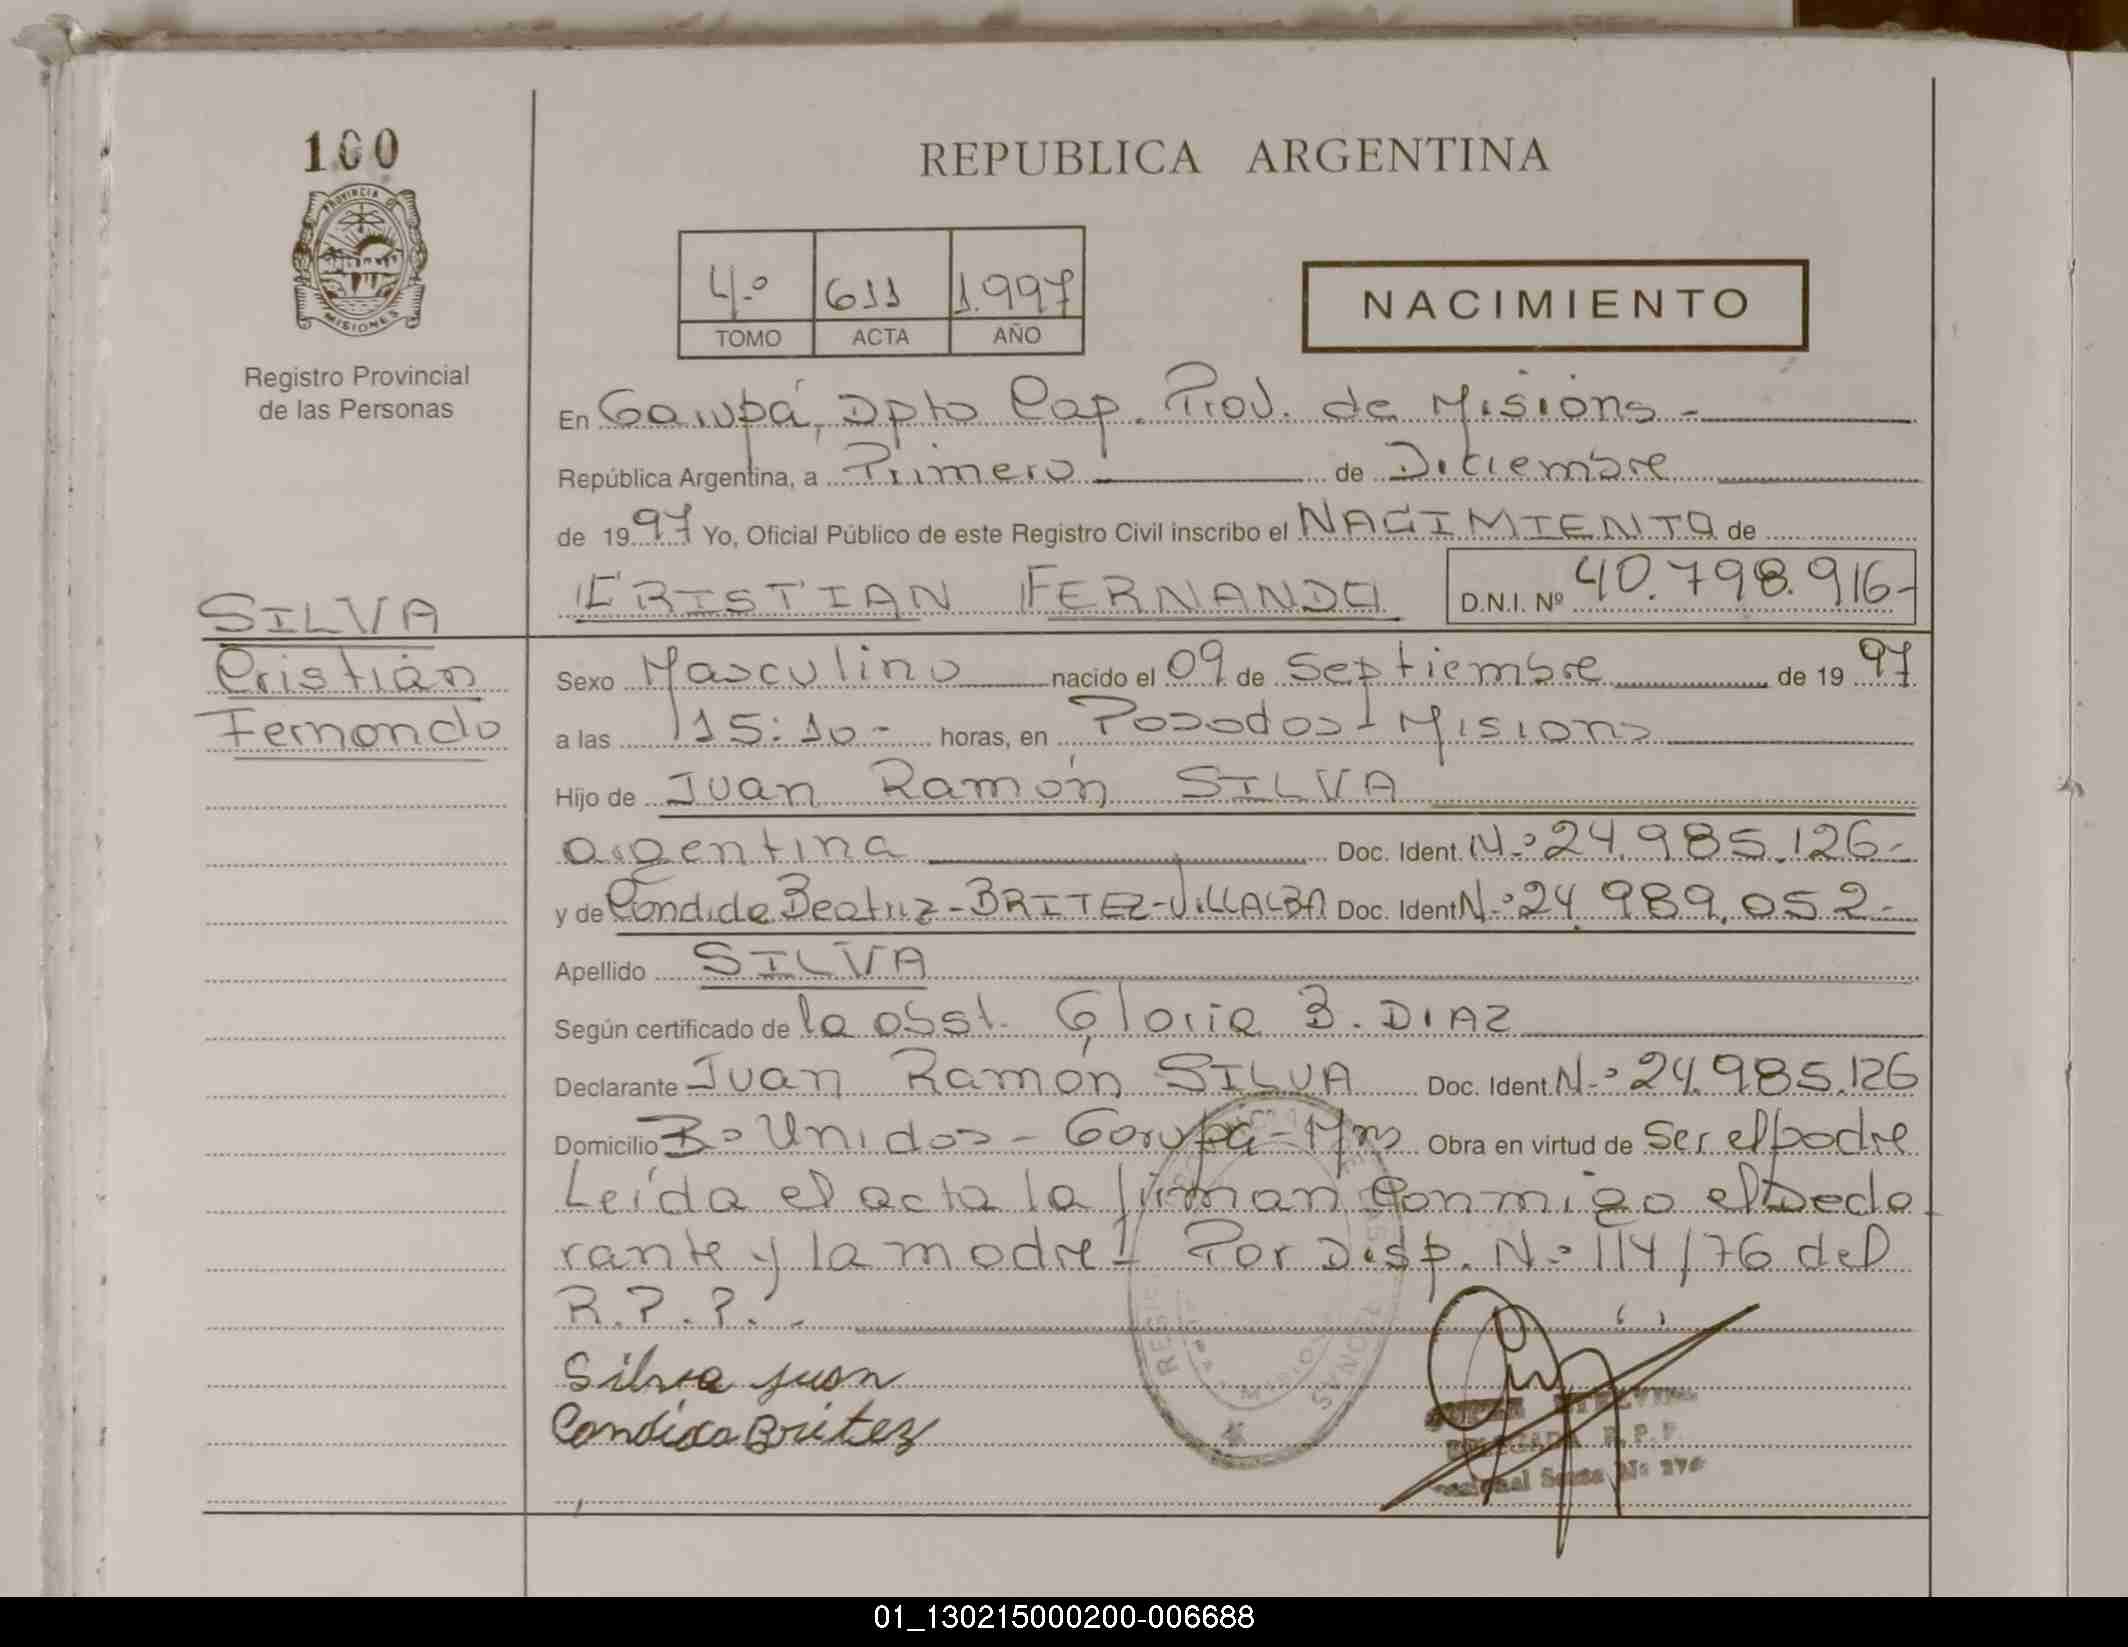 100
PROVINCIA DE
MISIONES
Registro Provincial
de las Personas
SILVA
Cristian
Fernando
REPUBLICA ARGENTINA
4º 611 1.997
TOMO ACTA AÑO
NACIMIENTO
En Garupá, Dpto Cap. Prov. de Misions -
República Argentina, a Primero de Diciembre
de 1997 Yo, Oficial Público de este Registro Civil inscribo el NACIMIENTO de
CRISTIAN FERNANDO D.N.I. Nº 40.798.916-
Sexo Masculino nacido el 09 de Septiembre de 1997
a las 15:10- horas, en Posadas - Misions
Hijo de Juan Ramón SILVA
argentina Doc. Ident. Nº 24.985.126-
y de Candida Beatriz - BRITEZ - VILLALBA Doc. Ident Nº 24.989.052-
Apellido SILVA
Según certificado de la obst. Gloria B. DIAZ
Declarante Juan Ramón SILVA Doc. Ident. Nº 24.985.126
Domicilio Bº Unidos - Garupá - Mns Obra en virtud de ser el padre
Leída el acta la firman conmigo el Decla
rante y la madre! Por Disp. Nº 114/76 del
R.P.P. -
Silva Juan
Candida Britez
DELEGADA R.P.P.
01_130215000200-006688